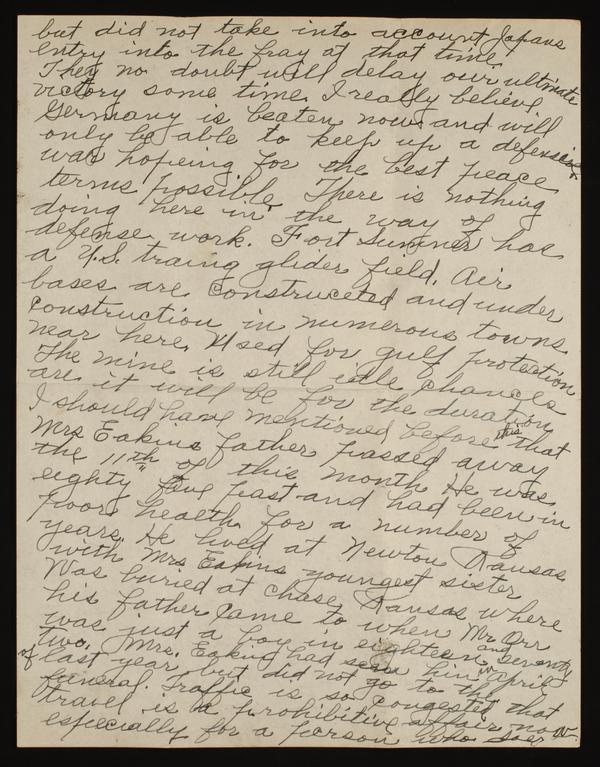 but did not take into account Japans
entry into the fray at that time.
They no doubt will delay our ultimate
victory some time. I really believe
Germany is beaten now and will
only be able to keep up a defensive
war hopeing for the best peace
terms possible. There is nothing
doing here in the way of
defense work. Fort Sumner has
a U.S. traing glider field. Air
bases are constructed and under
construction in numerous towns
near here. Used for gulf protection
The mine is still idle chances
are it will be for the duration
I should have mentioned before this that
Mrs Eakins father passed away
the 11th of this month He was
eighty five past and had been in
poor health for a number of
years. He lived at Newton Kansas
with Mrs Eakins youngest sister
Was buried at Chase, Kansas where
his father came to when Mr Orr
was just a boy in eighteen and seventy
two. Mrs. Eakins had seen him in April
of last year but did not go to the
funeral. Traffic is so congested that
travel is a prohibitive affair now.
especially for a person who